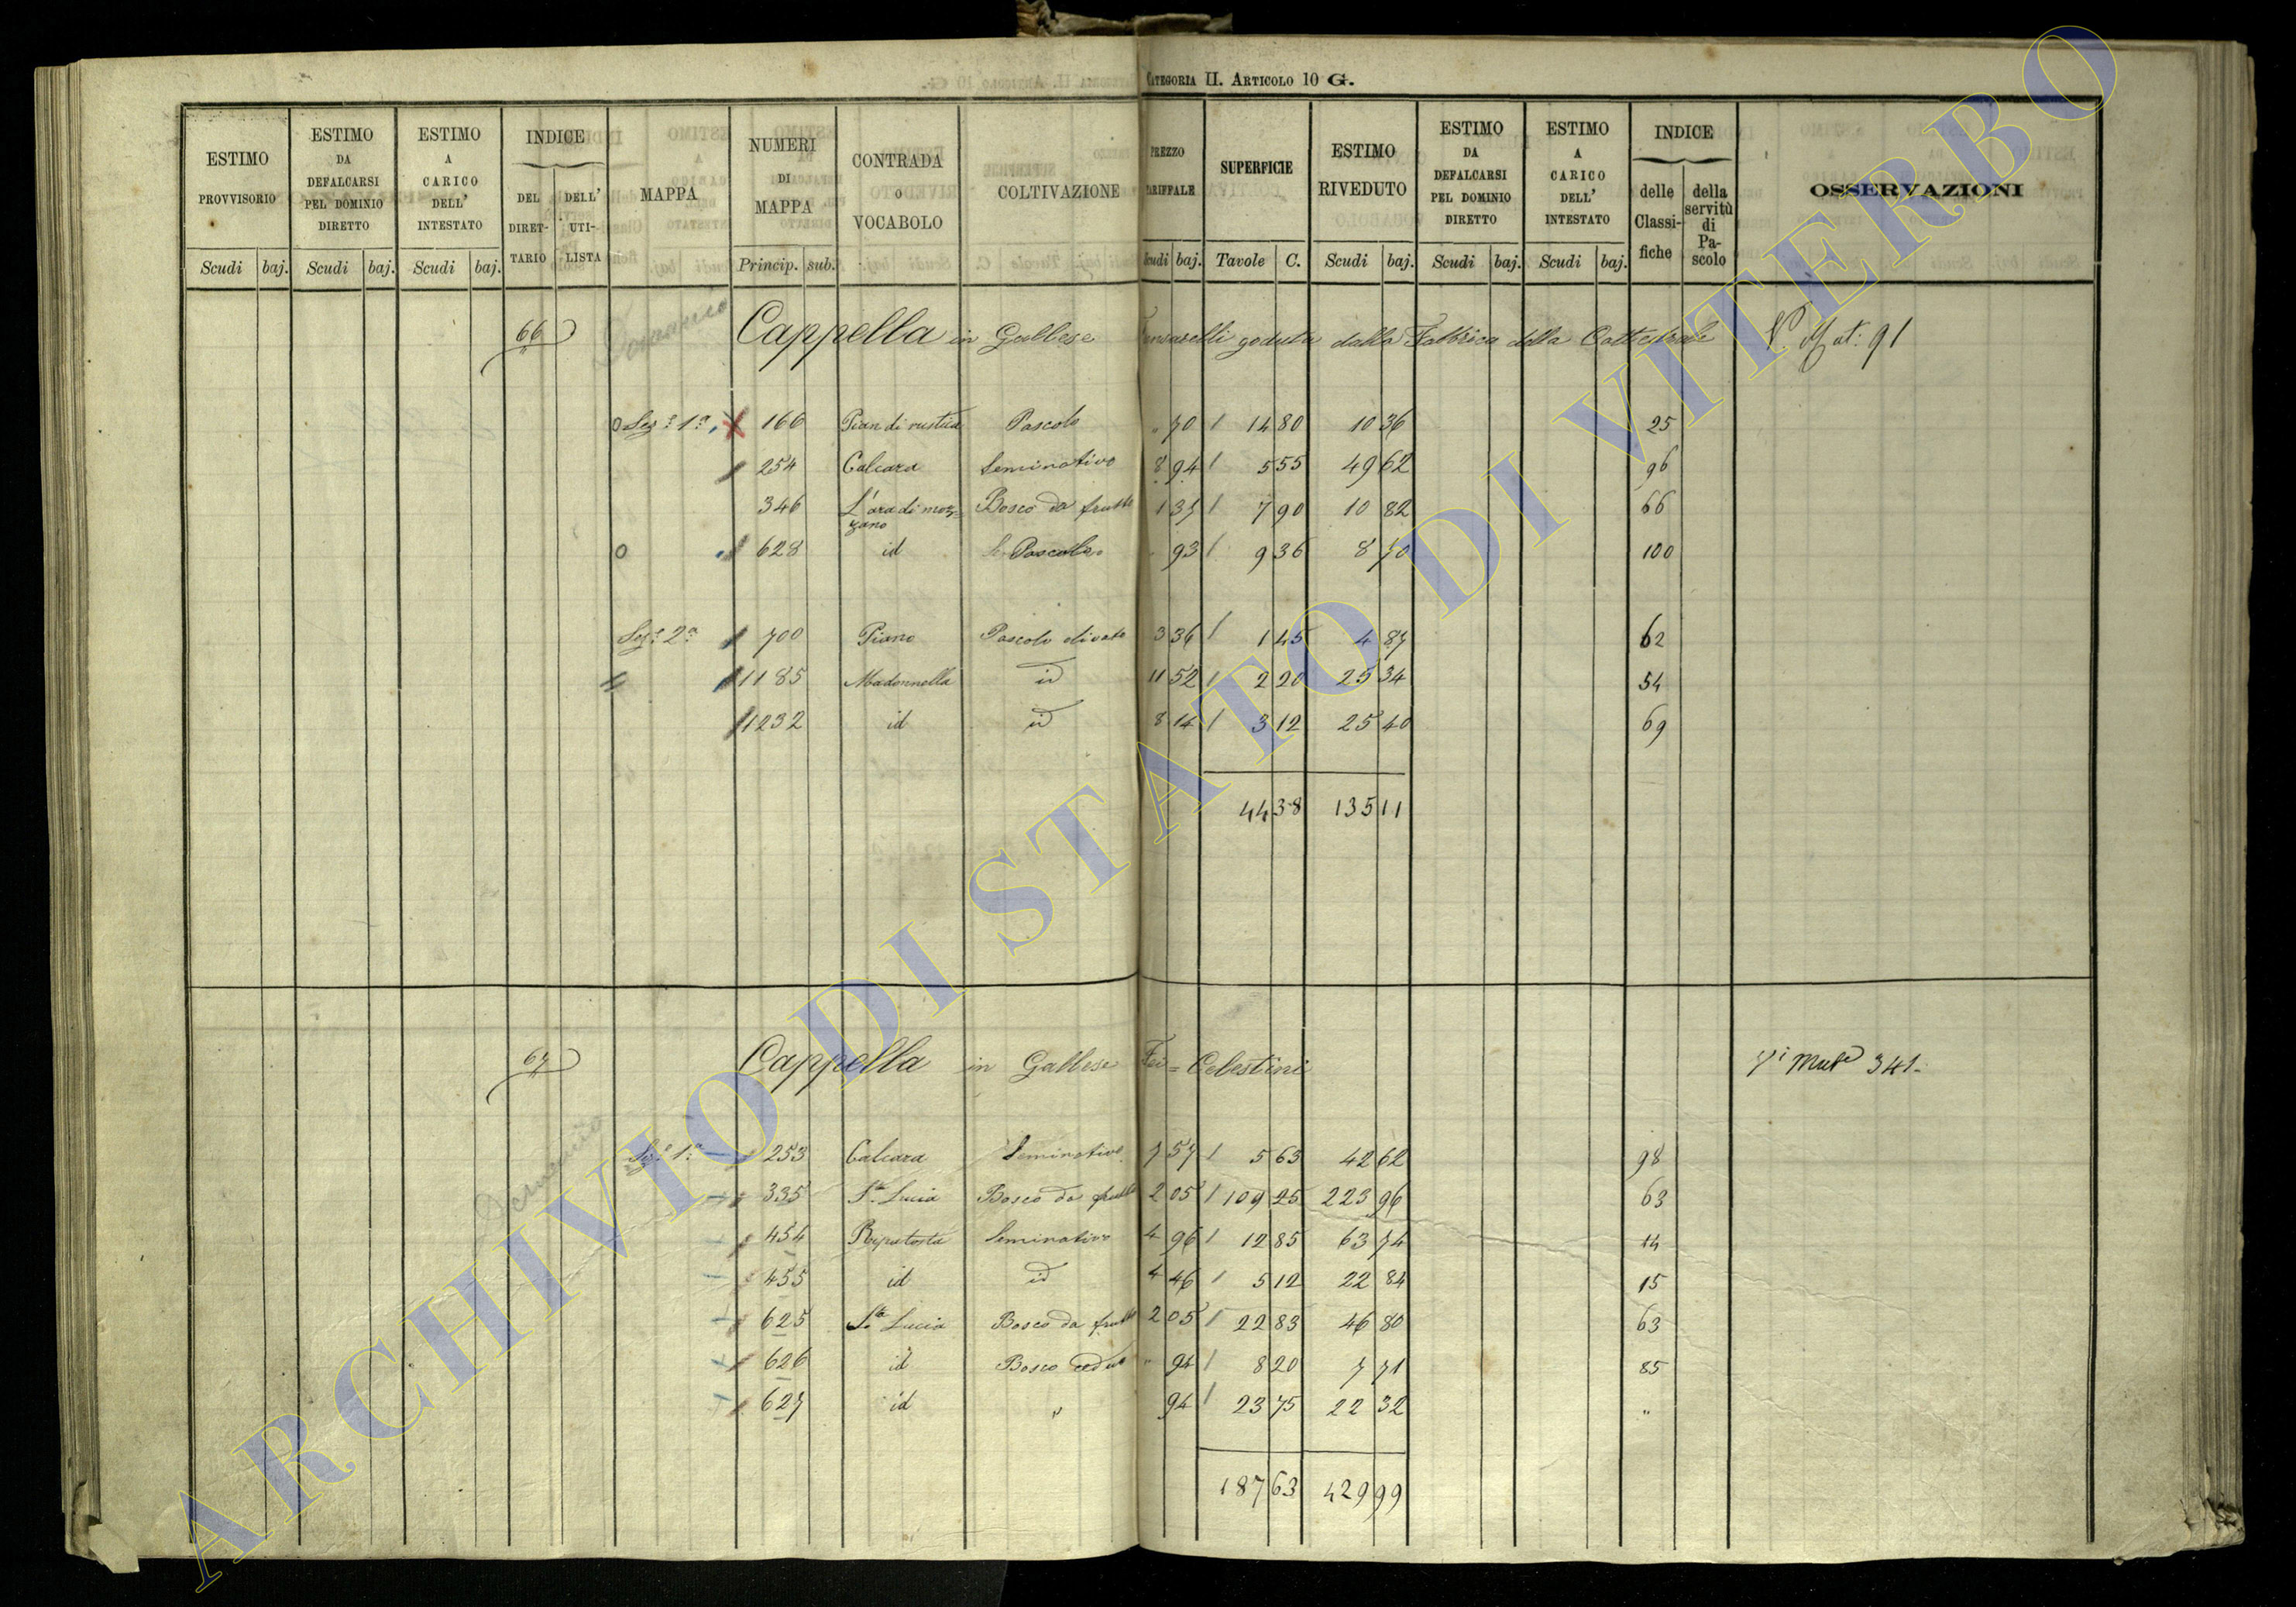 CATEGORIA II. ARTICOLO 10 G.
ESTIMO PROVVISORIO
ESTIMO DA DEFALCARSI PEL DOMINIO DIRETTO
ESTIMO A CARICO DELL' INTESTATO
INDICE
DEL DIRET-TARIO
DELL' UTI-LISTA
MAPPA
NUMERI DI MAPPA
CONTRADA O VOCABOLO
COLTIVAZIONE
PREZZO TARIFFALE
SUPERFICIE
ESTIMO RIVEDUTO
ESTIMO DA DEFALCARSI PEL DOMINIO DIRETTO
ESTIMO A CARICO DELL' INTESTATO
INDICE
delle Classi-fiche
della servitù di Pa-scolo
OSSERVAZIONI
Scudi baj. Scudi baj. Scudi baj. Princip. sub. Scudi baj. Tavole C. Scudi baj. Scudi baj. Scudi baj.
66 Cappella in Gallese goduta dalla Fabbrica della Cattedrale V. Mut: 91
Sez. 1a 166 Pian di rustica Pascolo " 70 14 80 10 36 25
254 Calcara Seminativo 8 94 5 55 49 62 96
346 L'ara di moz=zano Bosco da frutto 1 37 7 90 10 82 66
628 id Pascolo 93 9 36 8 70 100
Sez. 2a 700 Piano Pascolo olivato 3 36 1 45 4 87 62
1185 Madonnella id 11 52 2 20 25 34 54
1232 id id 8 14 3 12 25 40 69
44 38 135 11
67 Cappella in Gallese Celestini Mute 341
Sez. 1a 253 Calcara Seminativo 7 57 5 63 42 62 98
335 Sa Lucia Bosco da frutto 2 05 109 25 223 96 63
454 Ripatosta Seminativo 4 96 12 85 63 74 14
455 id id 4 46 5 12 22 84 15
625 Sta Lucia Bosco da frutto 2 05 22 83 46 80 63
626 id Bosco ceduo " 94 8 20 7 71 85
627 id " 94 23 75 22 32 "
187 63 429 99
ARCHIVIO DI STATO DI VITERBO